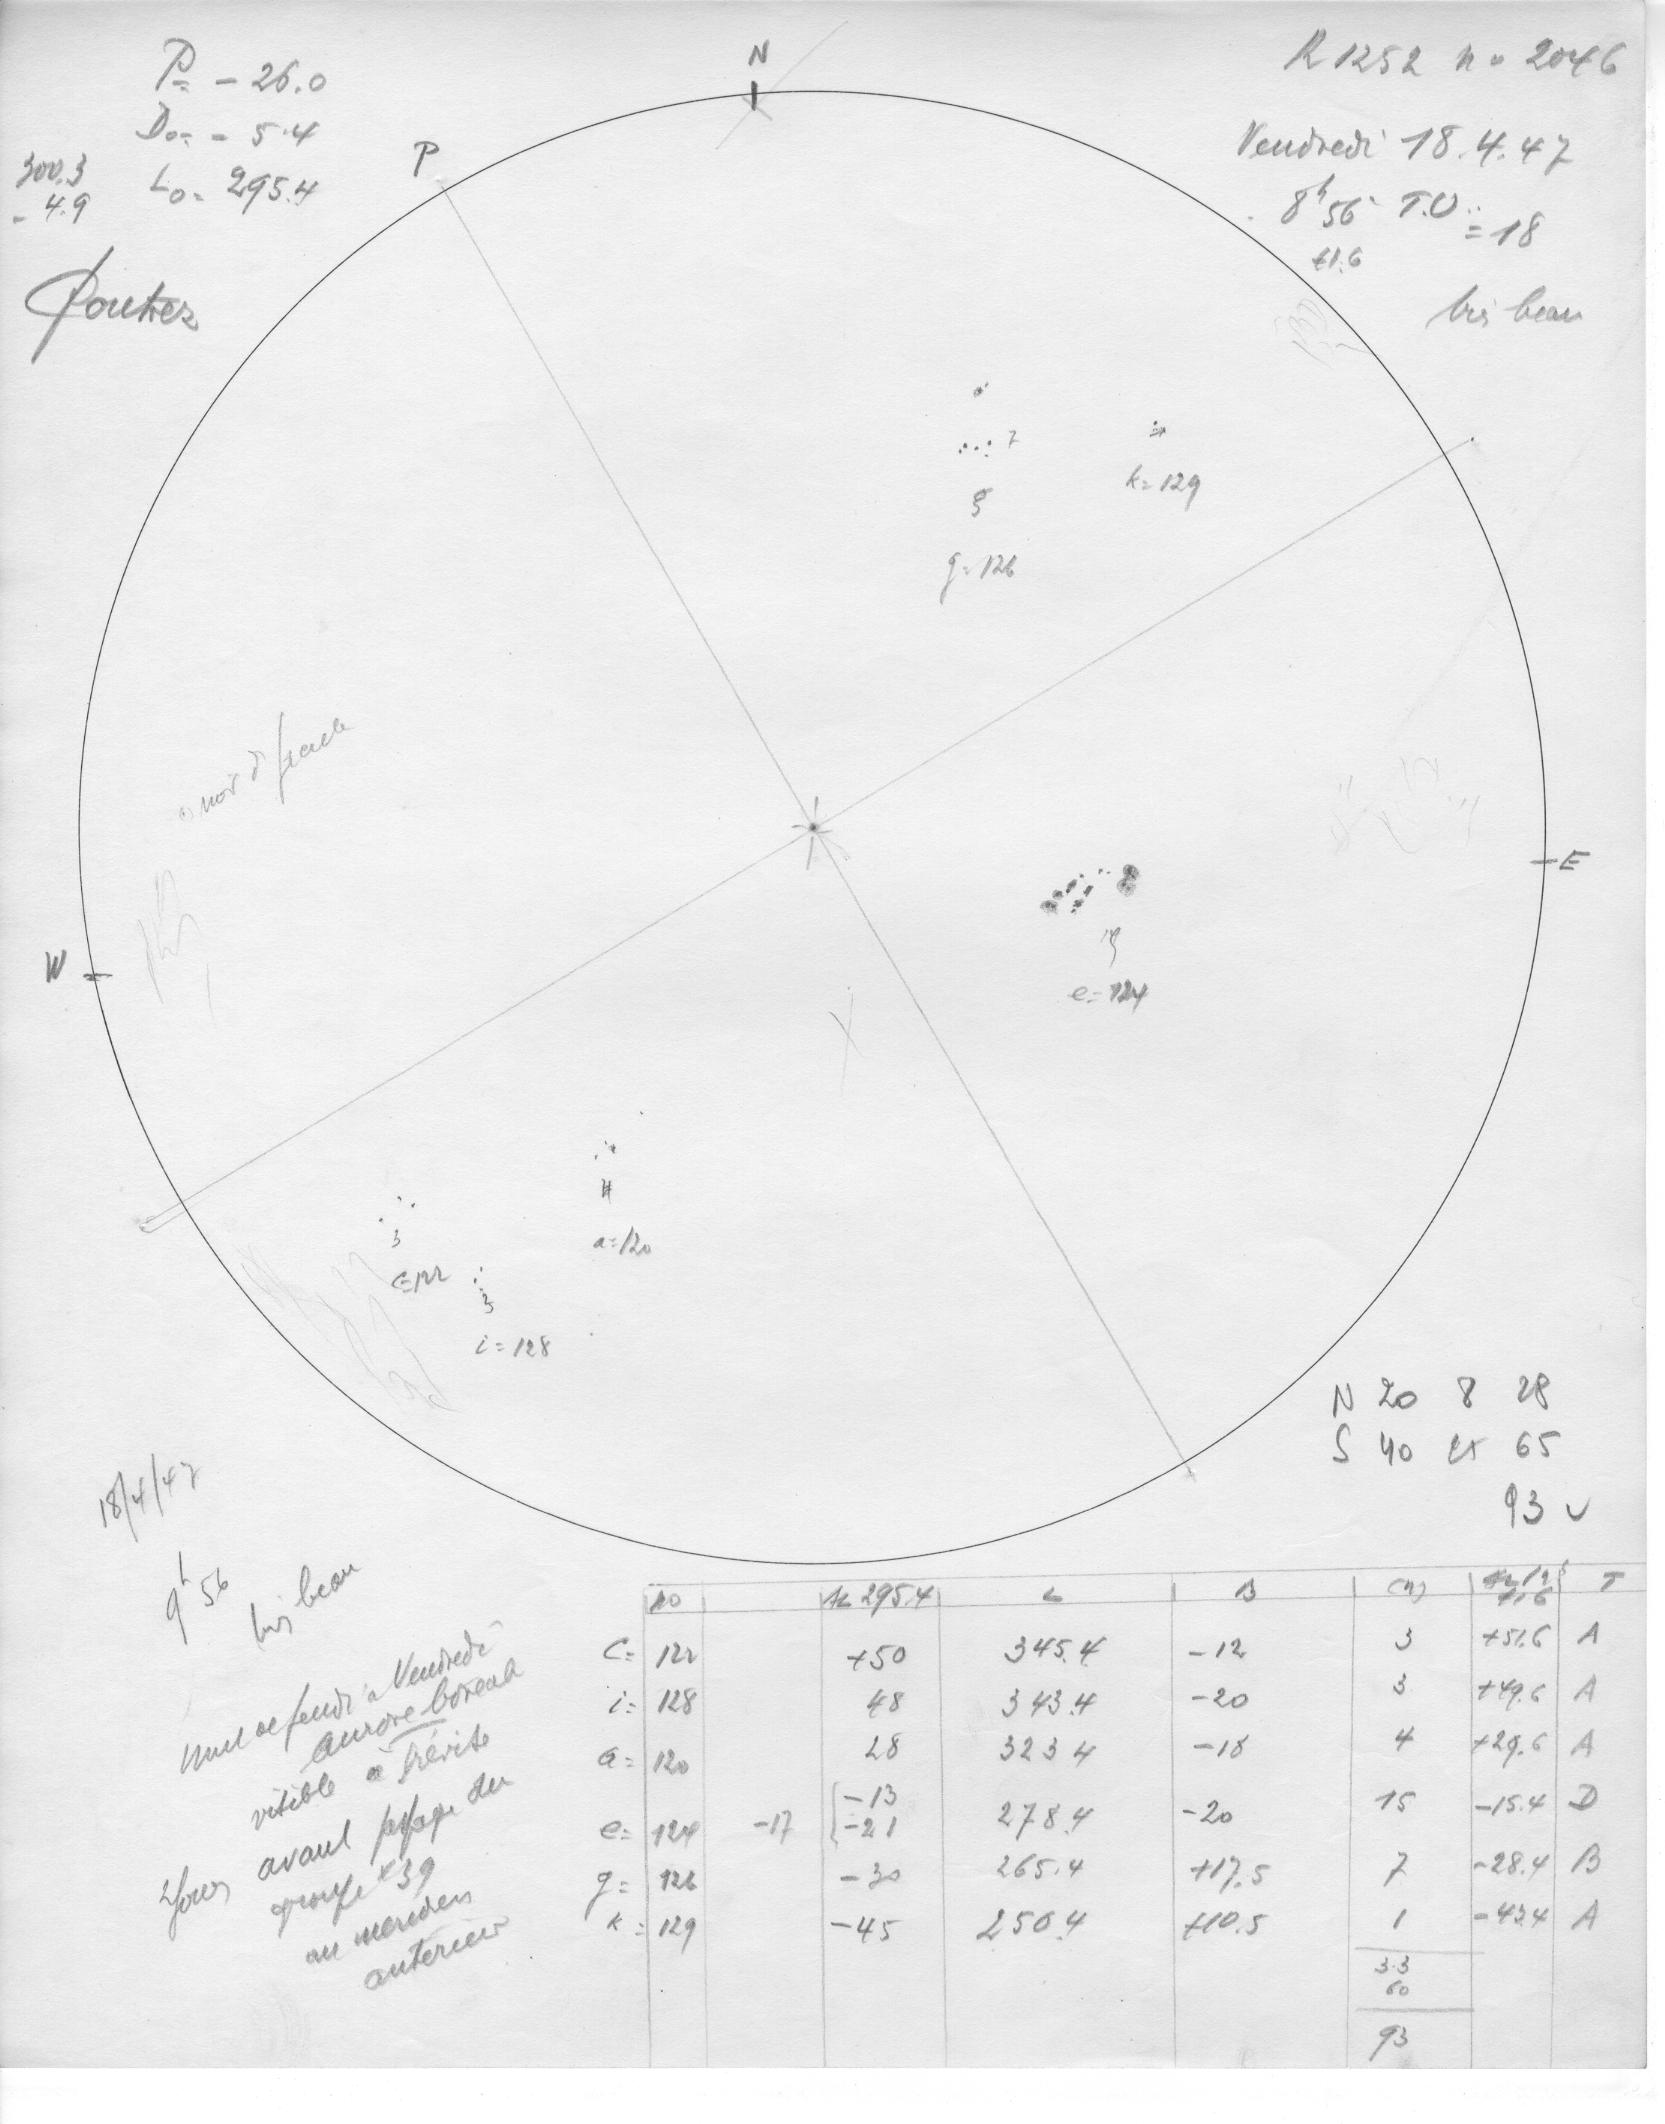 P= - 26.0
Do= - 5.4
Lo= 295.4
300.3
- 4.9
N
P
R 1252 no 2046
Vendredi 18.4.47
8h 56 T.U = 18
+1.6
très beau
7
k=129
g=126
E
W
e=124
4
a=120
3
c=122
3
i=128
N 20 8 28
S 40 25 65
93
18/4/47
9h 56
très beau
Vendredi
aurore boréale
visible à
avant passage du
groupe 39
au meridien
anterieur
no 295.4 L B (n) T
c= 122 +50 345.4 -12 3 +51.6 A
i= 128 48 343.4 -20 3 +49.6 A
a= 120 28 323.4 -18 4 +29.6 A
e= 124 -17 -13 -21 278.4 -20 15 -15.4 D
g= 126 -30 265.4 +17.5 7 -28.4 B
k= 129 -45 250.4 +10.5 1 -43.4 A
33
60
93